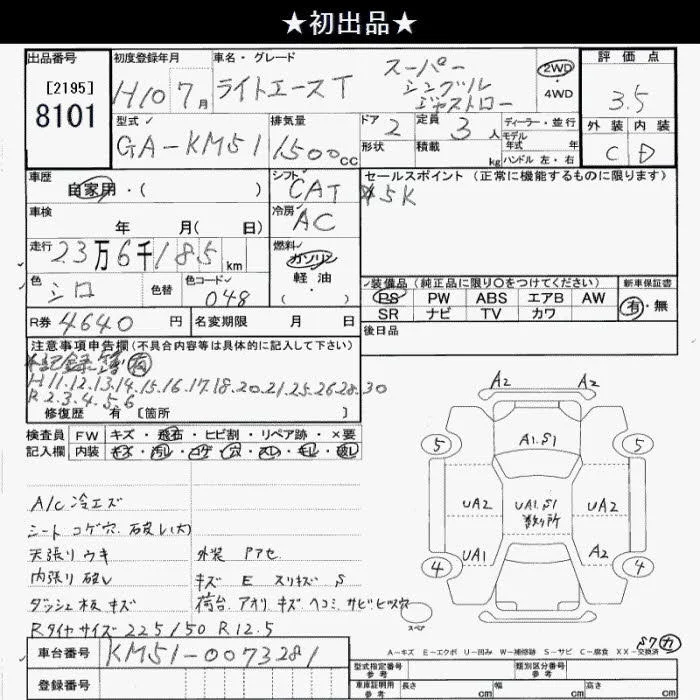 ★初出品★
出品番号
[2195]
8101
初度登録年月
H10 7月
車名・グレード
ライトエースT
スーパー
シングル
ジャストロー
2WD
・
4WD
評価点
3.5
外装 内装
C D
型式
GA-KM51
排気量
1500cc
ドア 2
形状
定員 3人
積載 kg
ディーラー・並行
モデル
年式 年
ハンドル 左・右
車歴
自家用・( )
シフト
CAT
セールスポイント (正常に機能するものに限ります)
5K
車検
年 月( 日)
冷房
AC
走行
23万6千185km
燃料
ガソリン
・
軽油
・
( )
色
シロ
色替
色コード
048
装備品(純正品に限り○をつけてください)
新車保証書
PS PW ABS エアB AW
SR ナビ TV カワ
有・無
R券 4640円
名変期限 月 日
後日品
注意事項申告欄(不具合内容等は具体的に記入して下さい)
記録簿 有
H11.12.13.14.15.16.17.18.20.21.25.26.28.30
R2.3.4.5.6
修復歴 有 〔箇所 〕
検査員
記入欄
FW キズ・飛石・ヒビ割・リペア跡・×要
内装 キズ・汚レ・コゲ・穴・スレ・キレ・破レ
A/C 冷エズ
シート コゲ穴 破レ(大)
天張リ ウキ
内張リ 破レ
ダッシュ板 キズ
Rタイヤサイズ 225/50 R12.5
外装 Pアセ
キズ E スリキズ S
荷台 アオリ キズ ヘコミ サビ ヒビ 穴
A2 A2
5 A1.S1 5
UA2 UA1.S1 UA2
数ヶ所
UA1 A2
4 4
スペア
S7 カ
A-キズ E-エクボ U-凹み W-補修跡 S-サビ C-腐食 XX-交換済
車台番号
KM51-0073281
登録番号
型式指定番号
参考
類別区分番号
参考
車庫証明用
参考
長さ cm
幅 cm
高さ cm